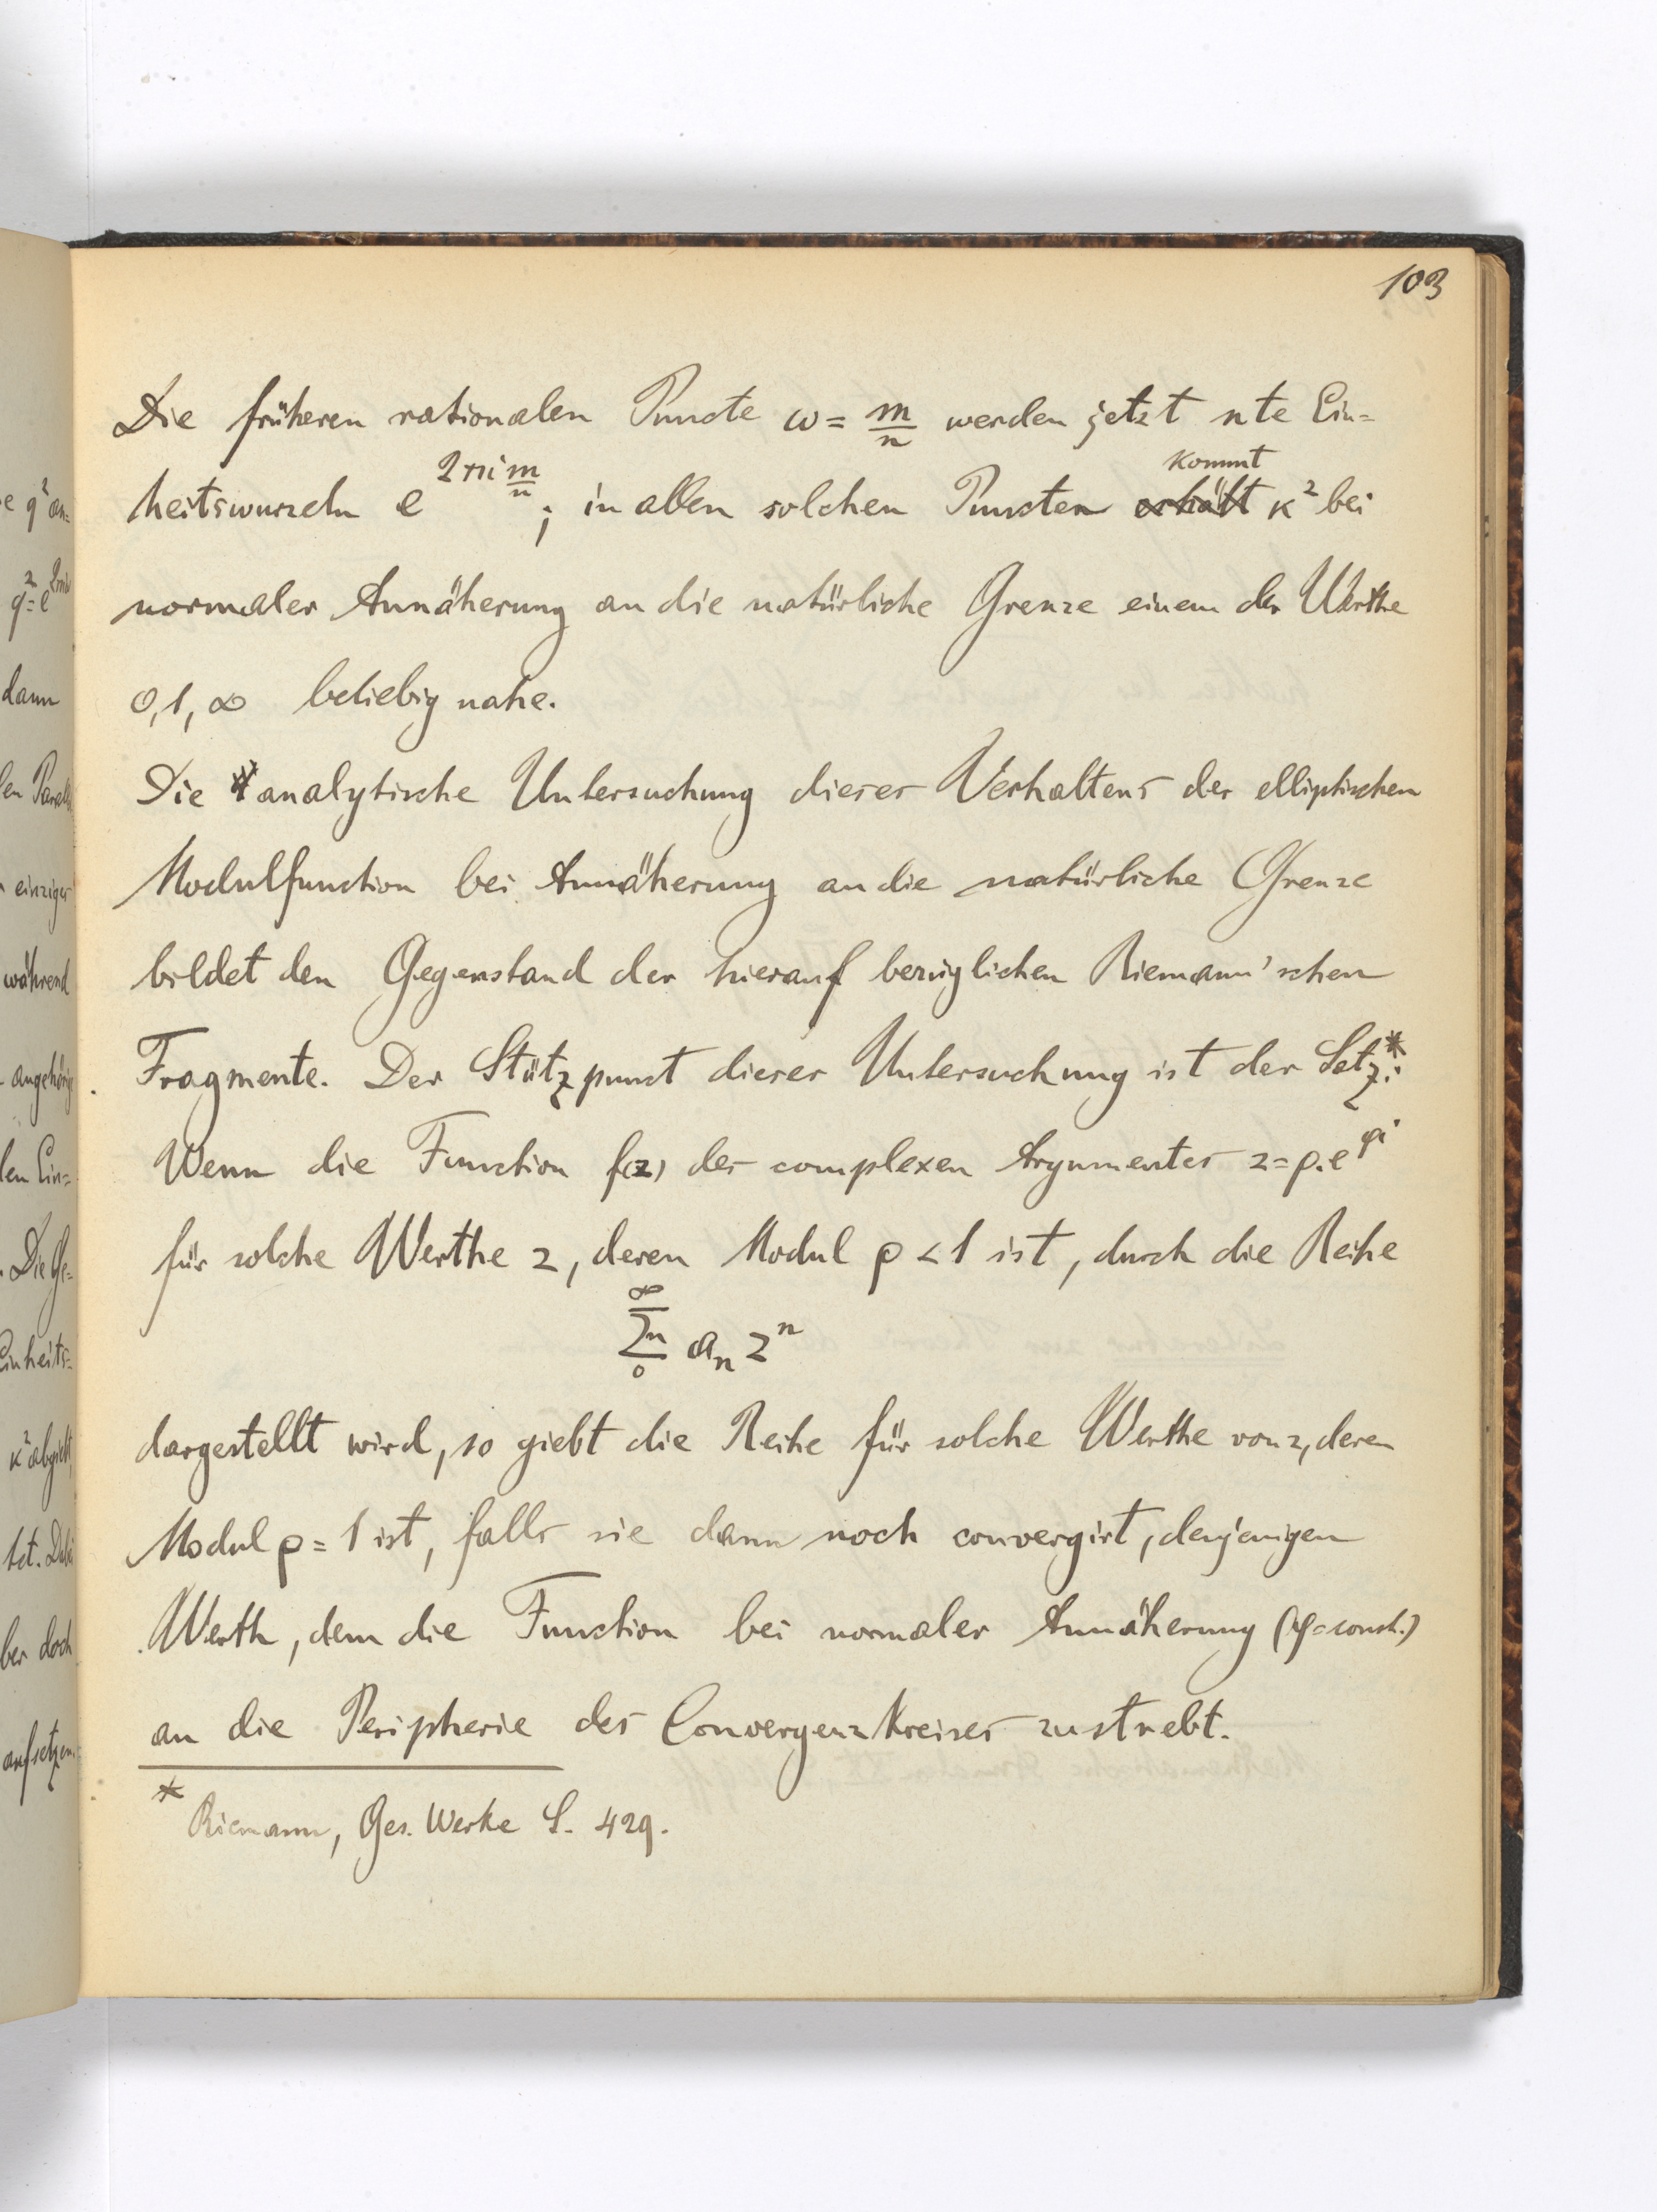 103
Die früheren rationalen Puncte ω = m/n werden jetzt nte Ein=
heitswurzeln e^{2πi m/n}; in allen solchen Puncten ~~erhält~~ kommt κ² bei
normaler Annäherung an die natürliche Grenze einem der Werthe
0, 1, ∞ beliebig nahe.
Die analytische Untersuchung dieses Verhaltens der elliptischen
Modulfunction bei Annäherung an die natürliche Grenze
bildet den Gegenstand der hierauf bezüglichen Riemann'schen
Fragmente. Der Stützpunct dieser Untersuchung ist der Satz*:
Wenn die Function f(z) des complexen Argumentes z = ρ.e^{φi}
für solche Werthe z, deren Modul ρ < 1 ist, durch die Reihe
∑_{0}^{∞}n a_n z^n
dargestellt wird, so giebt die Reihe für solche Werthe von z, deren
Modul ρ = 1 ist, falls sie dann noch convergirt, denjenigen
Werth, dem die Function bei normaler Annäherung (φ = const.)
an die Peripherie des Convergenzkreises zustrebt.
* Riemann, Ges. Werke S. 429.
e q² an=
q² = e^{2πiω}
dann
einziger
während
angehörige
len Ein=
. Die Ge=
Einheits=
κ² abgiebt,
ber doch
aufsetzen